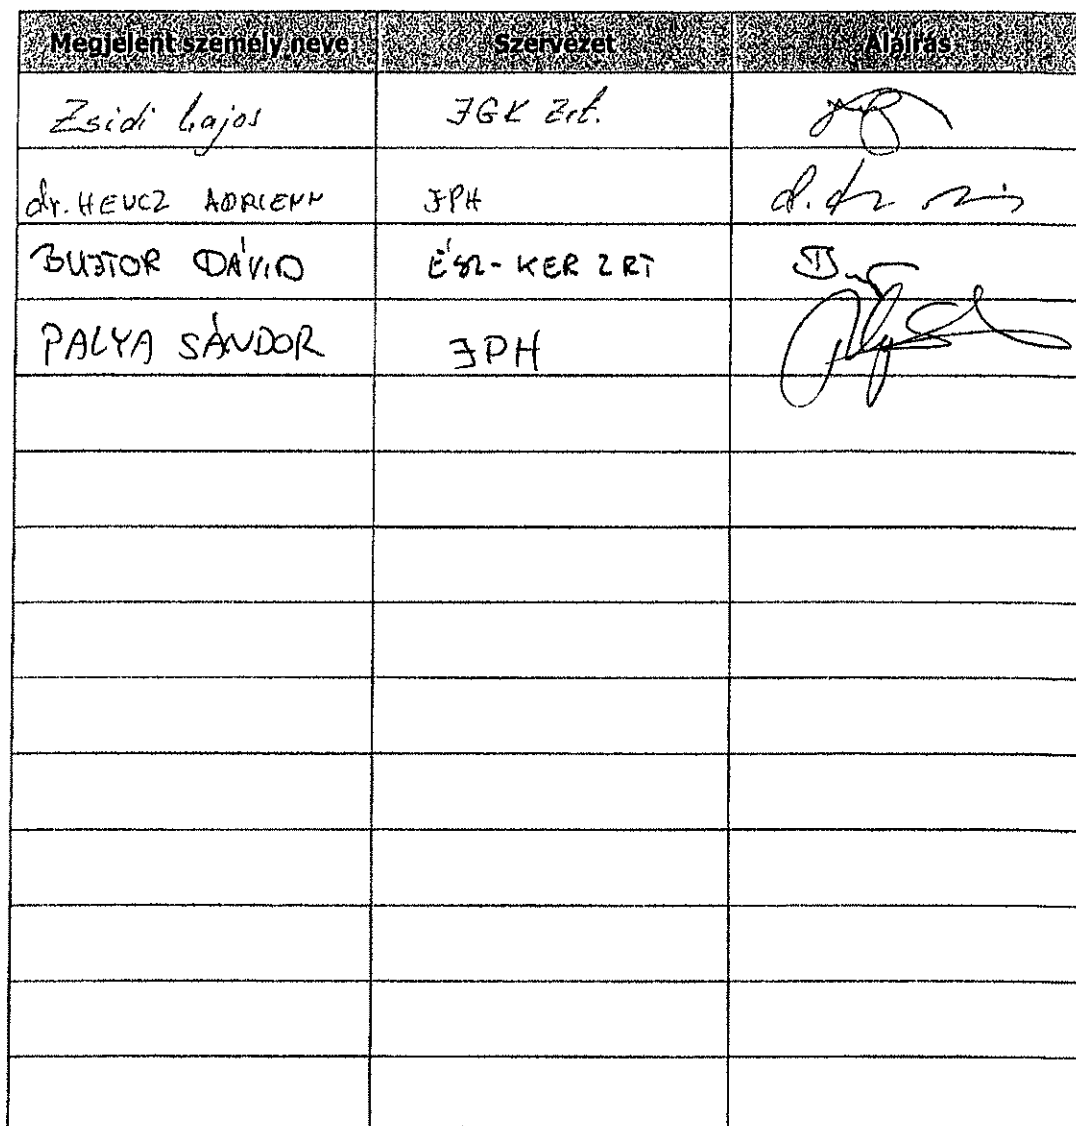 Megjelent személy neve Szervezet Aláírás
Zsidi Lajos JGK Zrt.
dr. HEUCZ ADRIENN JPH
BUJTOR DÁVID ÉSZ-KER ZRT
PALYA SÁNDOR JPH